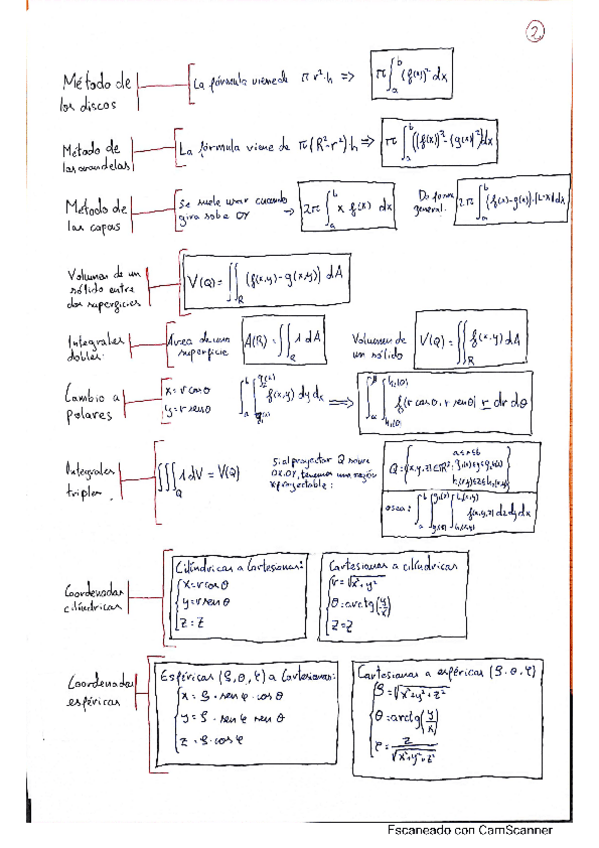 2
Método de los discos
La fórmula viene de π r²·h ⇒ π∫ₐᵇ (f(x))² dx
Método de las arandelas
La fórmula viene de π(R²-r²)·h ⇒ π∫ₐᵇ ((f(x))²-(g(x))²)dx
Método de las capas
Se suele usar cuando gira sobre OY → 2π∫ₐᵇ x f(x) dx
De forma general: 2π∫ₐᵇ (f(x)-g(x))·|L-x|dx
Volumen de un sólido entre dos superficies
V(Q)=∬_R (f(x,y)-g(x,y)) dA
Integrales dobles
Área de una superficie A(R)=∬ 1 dA
Volumen de un sólido V(Q)=∬_R f(x,y) dA
Cambio a polares
x=r cos θ
y=r sen θ
f(x,y) dy dx ⇒ f(r cos θ, r sen θ) r dr dθ
Integrales triples
∭_Q 1 dV = V(Q)
Si al proyectar Q sobre OX,OY, tenemos una región x proyectable:
a≤x≤b
o sea: f(x,y,z) dz dy dx
Coordenadas cilíndricas
Cilíndricas a Cartesianas:
x=r cos θ
y=r sen θ
z=z
Cartesianas a cilíndricas
r=√x²+y²
θ=arctg(y/x)
z=z
Coordenadas esféricas
Esféricas (ρ,θ,φ) a Cartesianas:
x=ρ·sen φ·cos θ
y=ρ·sen φ sen θ
z=ρ·cos φ
Cartesianas a esféricas (ρ,θ,φ)
ρ=√x²+y²+z²
θ=arctg(y/x)
φ=z/√x²+y²+z²
Escaneado con CamScanner